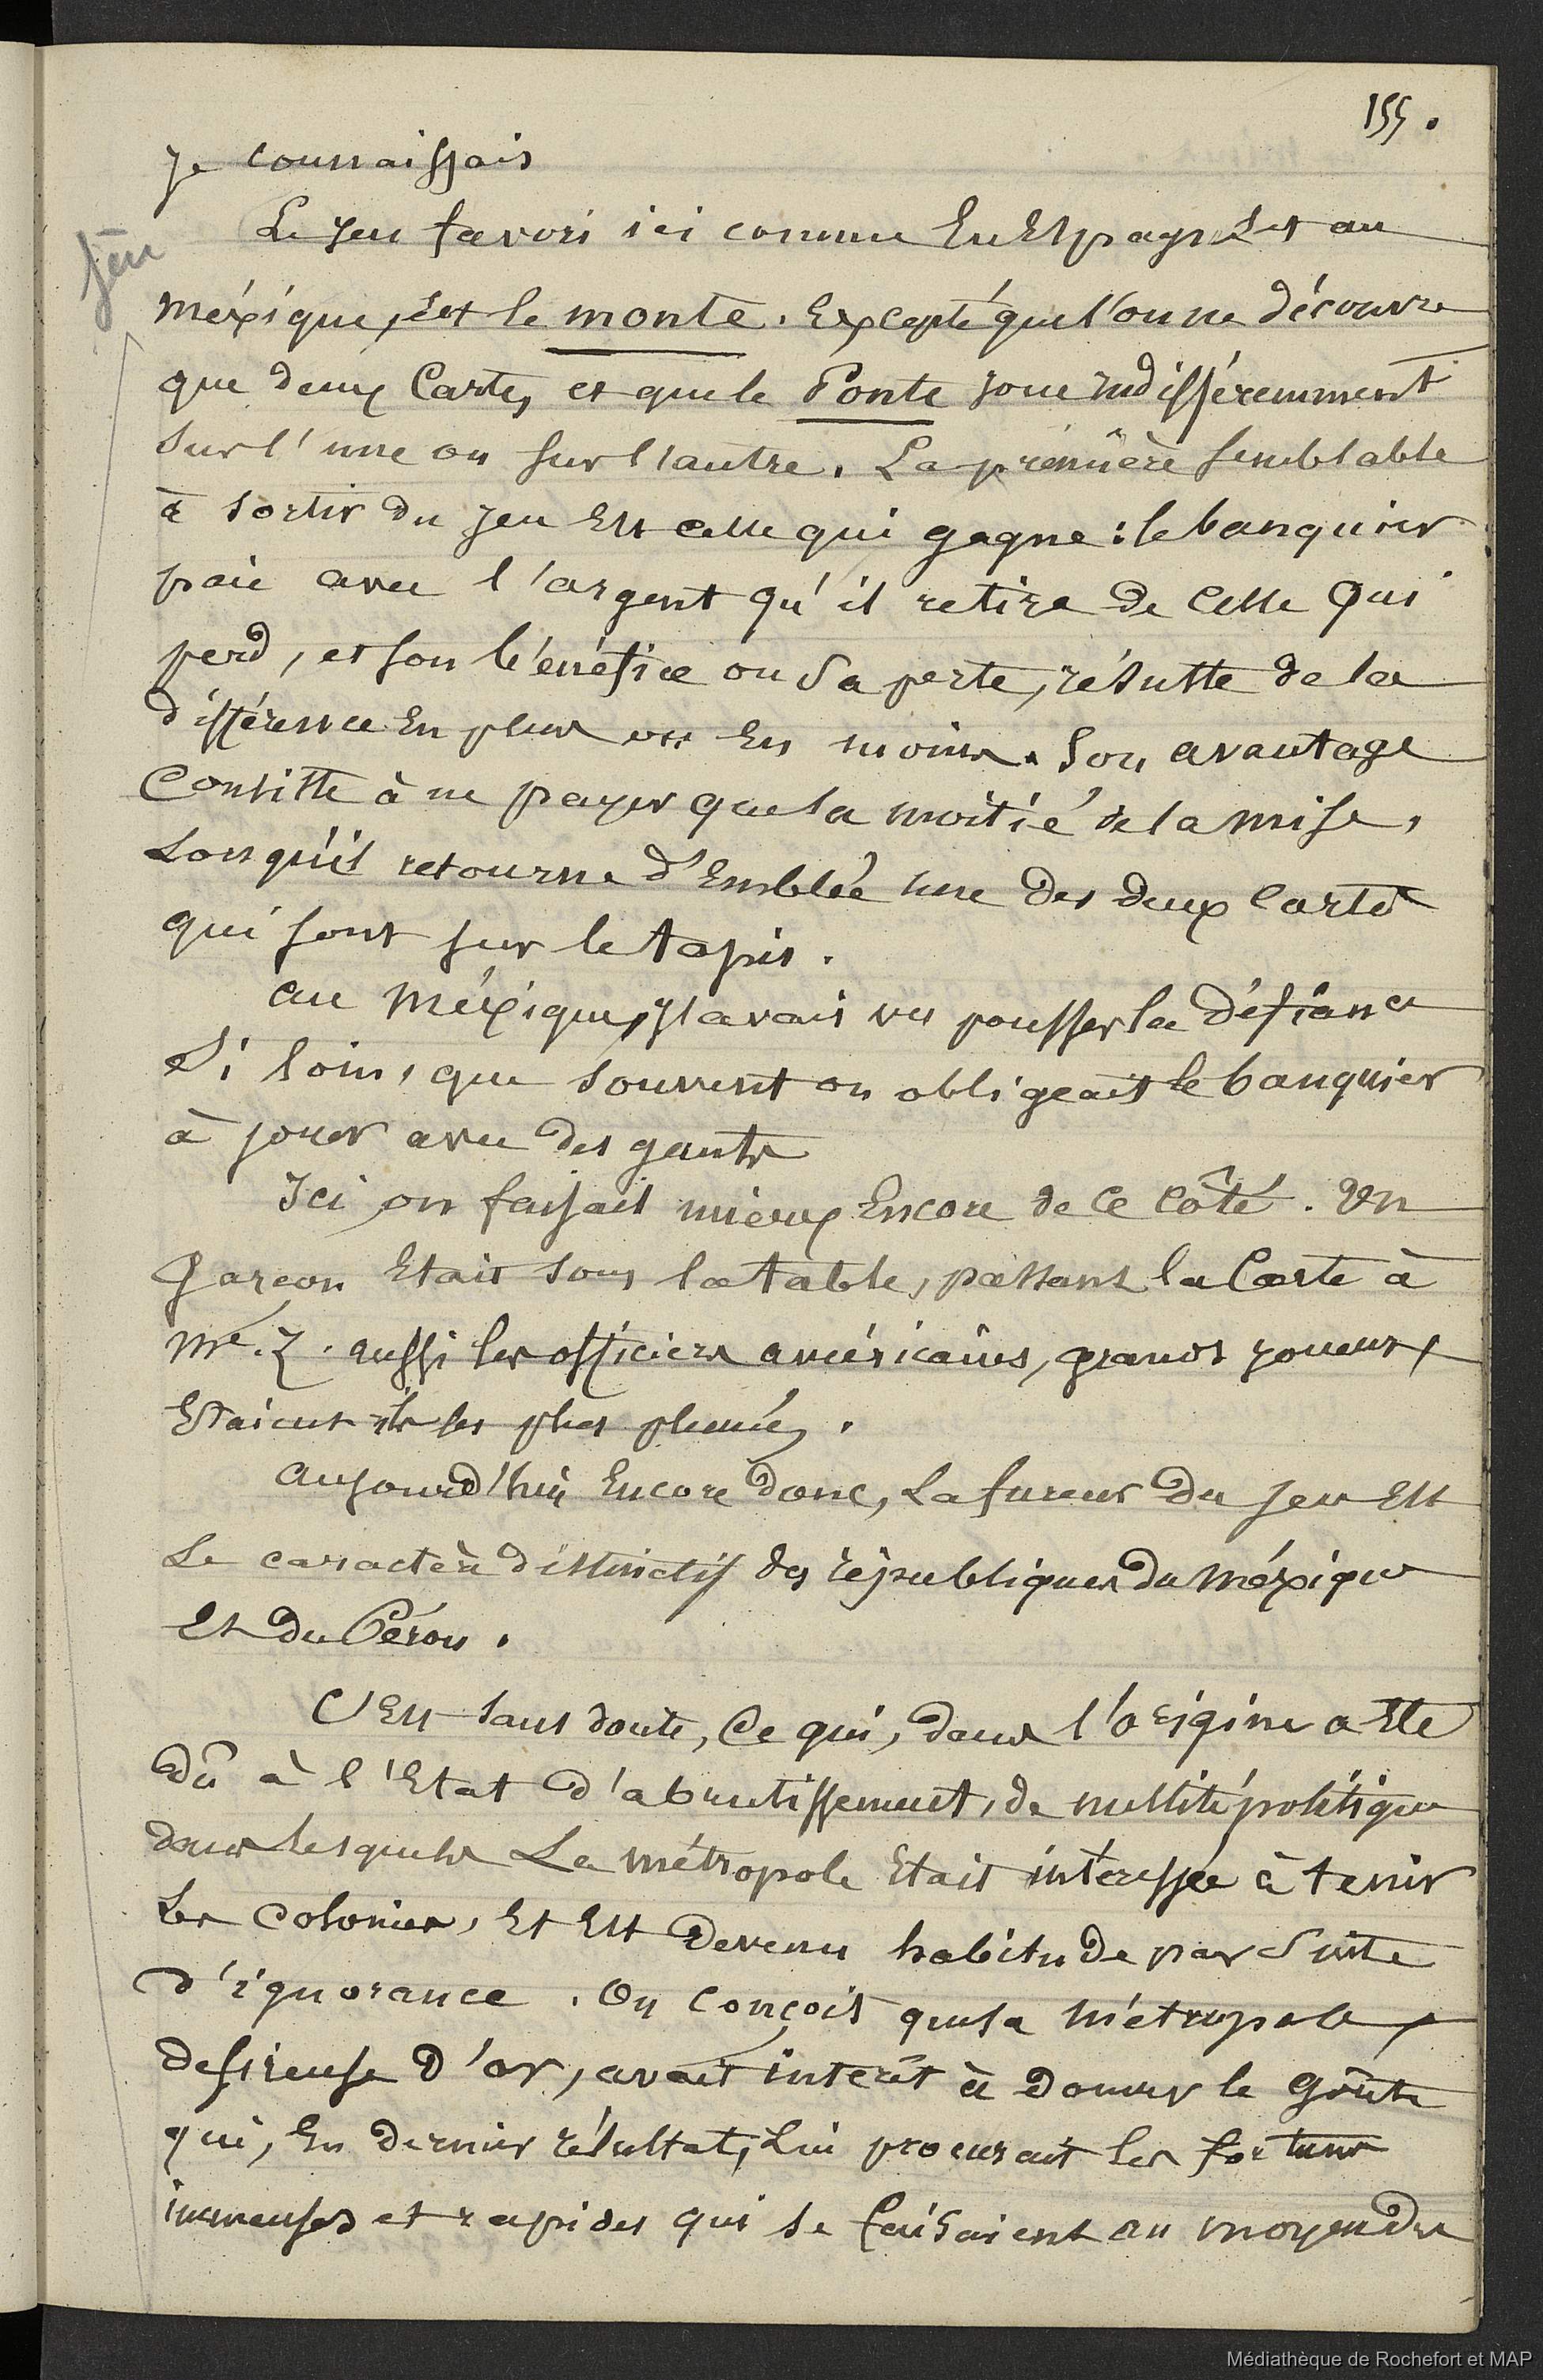 155.
je connaissais
Jeu
Le jeu favori ici comme En Espagne Et au
méxique, Est le monte. Excepté que l'on ne découvre
que deux Cartes, et que le Ponte joue indifféremment
sur l'une ou sur l'autre. La première semblable
à sortir du jeu Est celle qui gagne : le banquier
paie avec l'argent qu'il retire de celle qui
perd, et son bénéfice ou sa perte, résulte de la
différence En plus ou En moins. Son avantage
Consiste à ne payer que la moitié de la mise,
Lorsqu'il retourne d'Emblée une des deux cartes
qui sont sur le tapis.
au Méxique, j'avais vu pousser la défiance
si loin, que souvent on obligeait le banquier
à jouer avec des gants
Ici on faisait mieux Encore de ce côté. Un
garçon Etait sous la table, passant la Carte à
Mr. Z. aussi les officiers américains, grands joueurs,
Etaient ils les plus plumés.
aujourd'hui Encore donc, La fureur du jeu Est
Le caractère distinctif des républiques du Méxique
Et du Pérou.
C'Est sans doute, Ce qui, dans l'origine a Eté
dû à l'Etat d'abrutissement, de nullité politique
dans lesquels La métropole Etait intéressée à tenir
Les Colonies, Et Est devenu habitude par suite
d'ignorance. On conçoit que la métropole,
desireuse d'or, avait intérêt à donner le goût
qui, En dernier résultat, Lui procurait les fortunes
immenses et rapides qui se faisaient au moyen des
Médiathèque de Rochefort et MAP